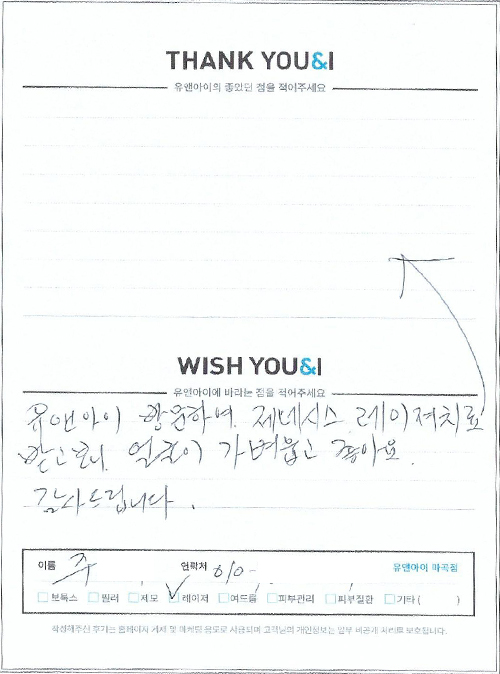 THANK YOU&I
유앤아이의 좋았던 점을 적어주세요
WISH YOU&I
유앤아이에 바라는 점을 적어주세요
유앤아이 방문하여 제네시스 레이져치료
받고보니 얼굴이 가벼웁고 좋아요.
감사드립니다.
이름 주 연락처 010- 유앤아이 마곡점
보톡스 필러 제모 레이저 여드름 피부관리 피부질환 기타 ( )
작성해주신 후기는 홈페이지 게재 및 마케팅 용도로 사용되며 고객님의 개인정보는 일부 비공개 처리로 보호됩니다.